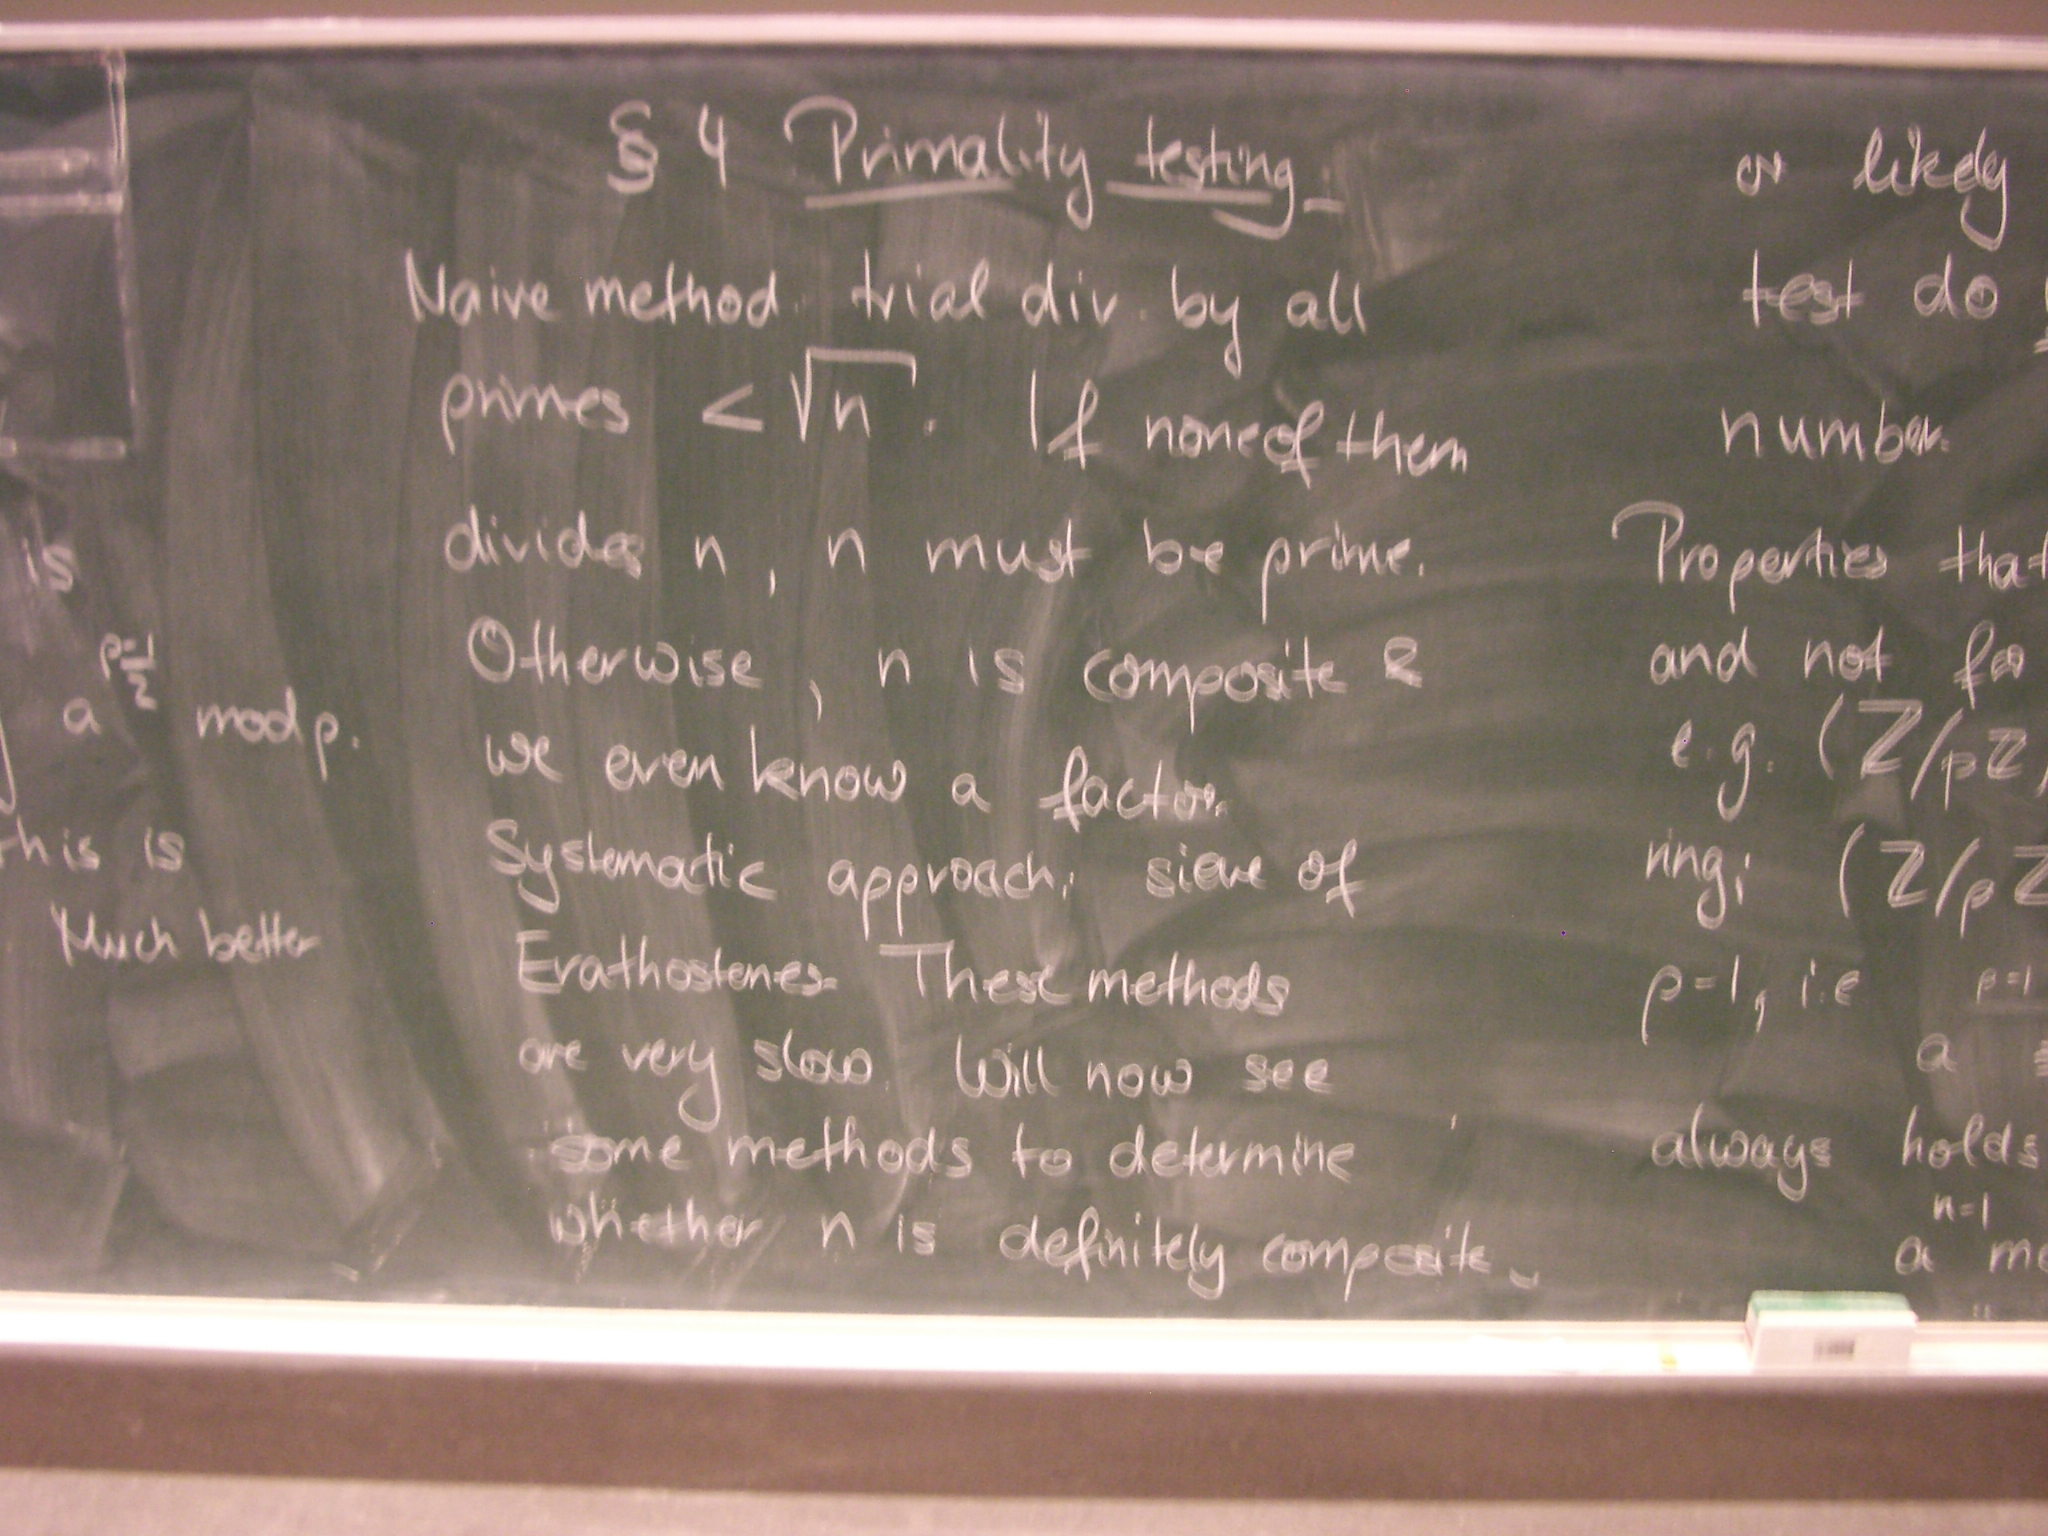 is
a^{p-1/2} mod p.
this is
Much better
§ 4 Primality testing
Naive method: trial div. by all
primes < √n. If none of them
divides n, n must be prime.
Otherwise, n is composite &
we even know a factor.
Systematic approach: sieve of
Erathostenes. These methods
are very slow. Will now see
some methods to determine
whether n is definitely composite
or likely
test do
number.
Properties that
and not fo
e.g. (Z/pZ)
ring; (Z/pZ
p-1, i.e p-1
a ≡
always holds
n-1
a mo